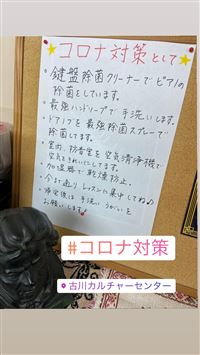 ★コロナ対策として★
・鍵盤除菌クリーナーでピアノの
除菌をしています。
・最強ハンドソープで手洗いします。
・ドアノブを最強除菌スプレーで
除菌してます。
・室内、防音室を空気清浄機で
空気をきれいにしてます。
・加湿器で乾燥防止。
・今まで通りレッスンに集中してね♪
・帰宅後は手洗いうがいを
お願いします♪
#コロナ対策
古川カルチャーセンター